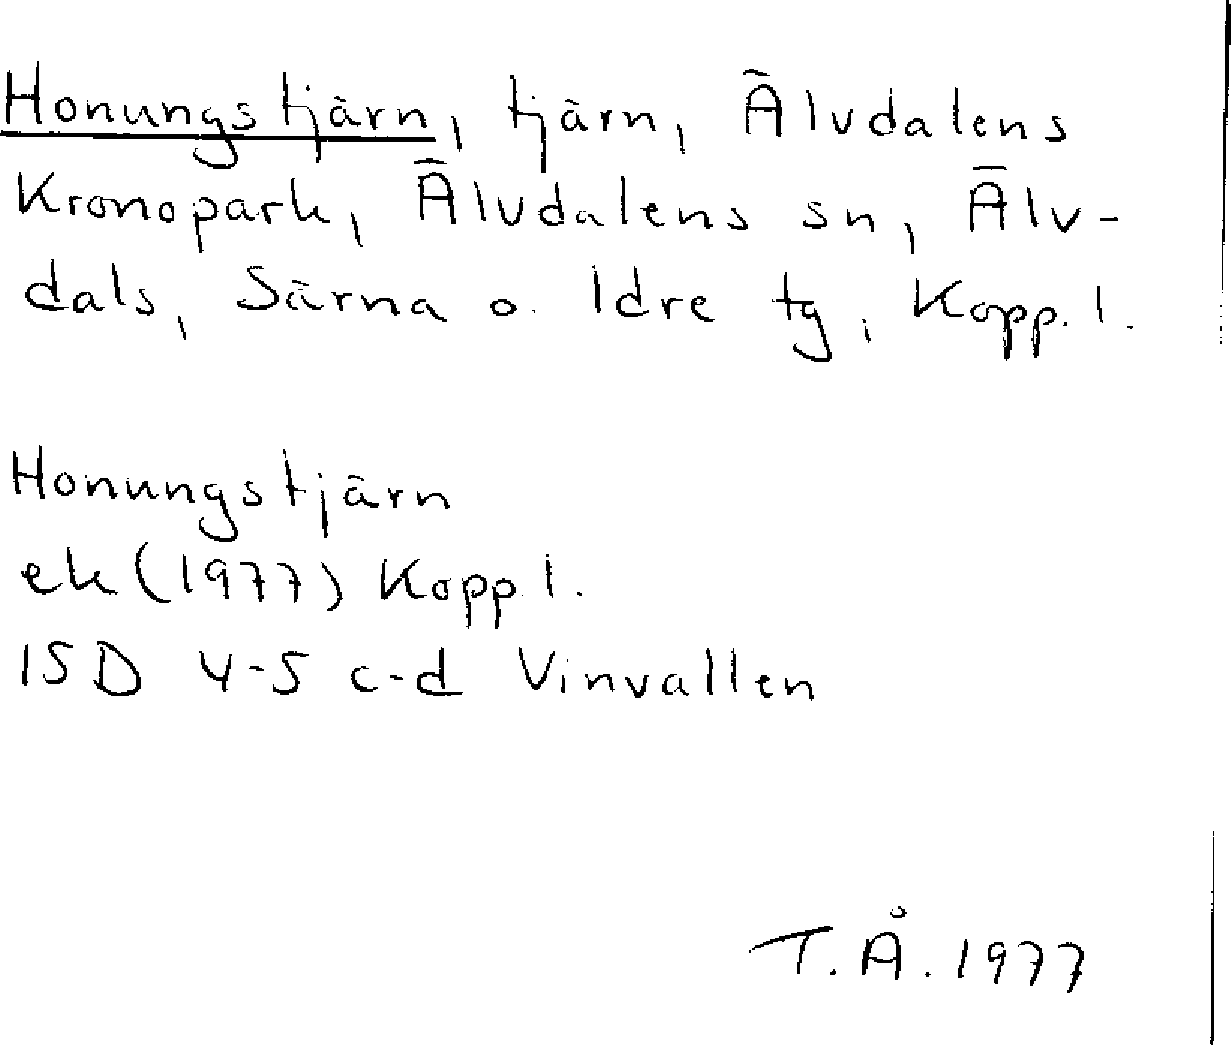 Honungstjärn, tjärn, Älvdalens
Kronopark, Älvdalens sn, Älv-
dals, Särna o. Idre tg, Kopp. l.
Honungstjärn
ek (1977) Kopp l.
15D 4-5 c-d Vinvallen
T.Å. 1977